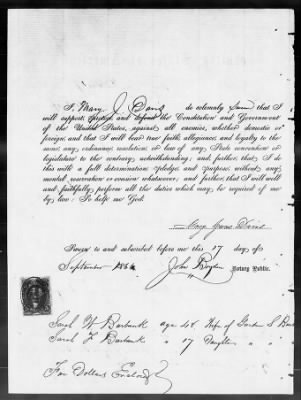 I, Mary J Davis do solemnly swear that I
will support, protect and defend the Constitution and Government
of the United States, against all enemies, whether domestic or
foreign and that I will bear true faith, allegiance and loyalty to the
same any ordinance, resolution or law of any State convention or
legislature to the contrary notwithstanding; and, further, that I do
this with a full determination, pledge and purpose, without any
mental reservation or evasion whatsoever; and, further that I will well
and faithfully perform all the duties which may be required of me
by law: So help me God.
Mary Jane Davis
Sworn to and subscribed before me this 17 day of
September 186
John
Notary Public.
Sarah W Burbank age 46 Wife of S
Sarah F Burbank " 17 Daughter " "
Four Dollars Enclosed